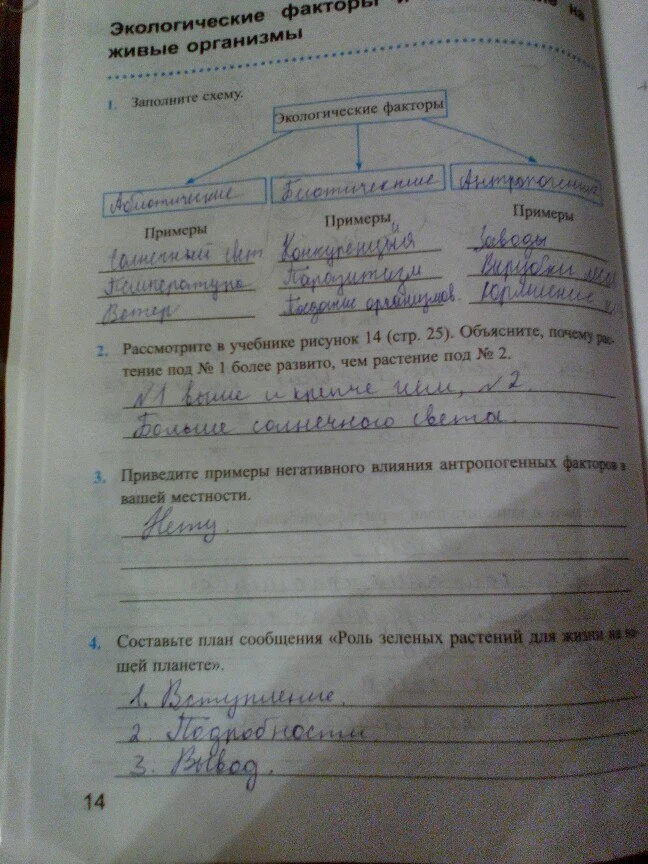 Экологические факторы и на
живые организмы
1. Заполните схему.
Экологические факторы
Абиотические Биотические Антропогенные
Примеры Примеры Примеры
Солнечный свет Конкуренция Заводы
Температура Паразитизм Вырубки
Ветер Поедание организмов
2. Рассмотрите в учебнике рисунок 14 (стр. 25). Объясните, почему рас-
тение под № 1 более развито, чем растение под № 2.
№1 выше и крепче чем, №2.
Больше солнечного света.
3. Приведите примеры негативного влияния антропогенных факторов в
вашей местности.
Нету.
4. Составьте план сообщения «Роль зеленых растений для жизни на на-
шей планете».
1. Вступление.
2. Подробности
3. Вывод.
14